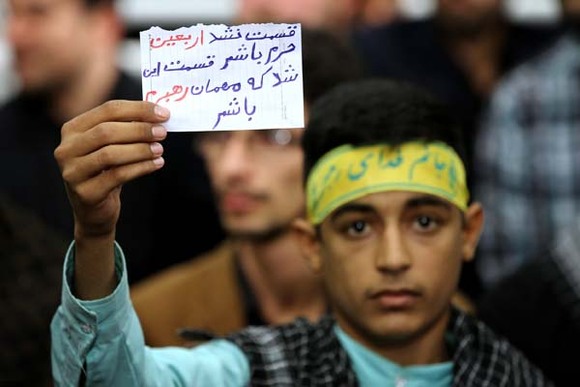 قسمت نشد اربعین
حرم باشم قسمت این
شد که مهمان رهبرم
باشم
جانم فدای رهبر